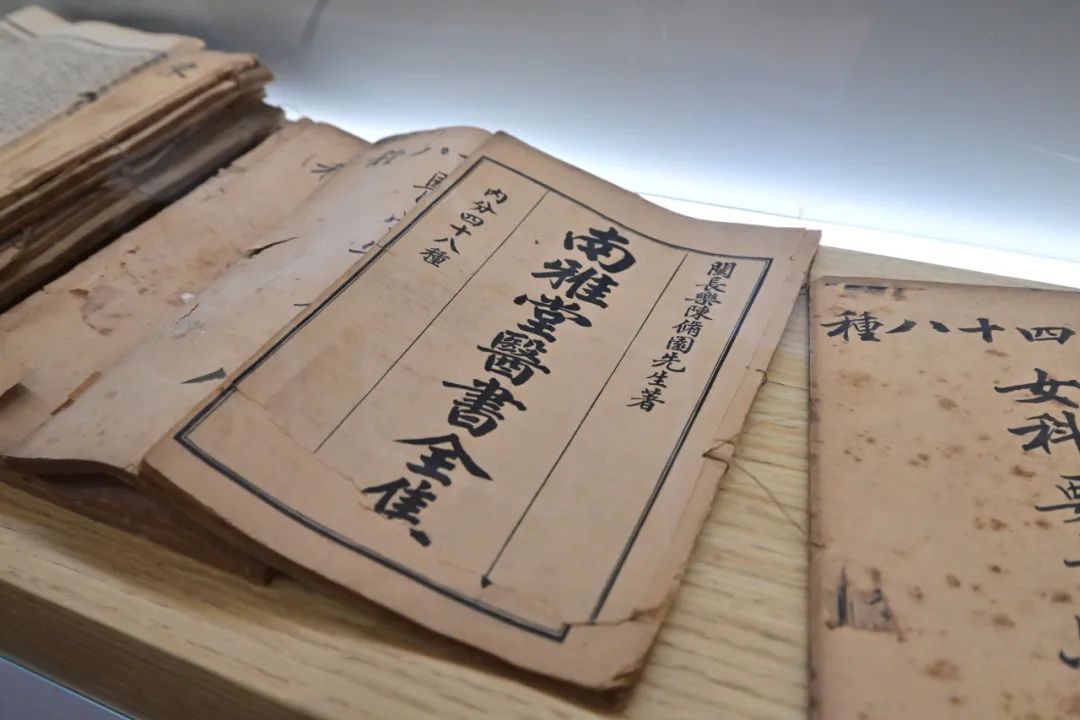 閩長樂陳脩園先生著
南雅堂醫書全集
内分四十八種
四十八種
女科